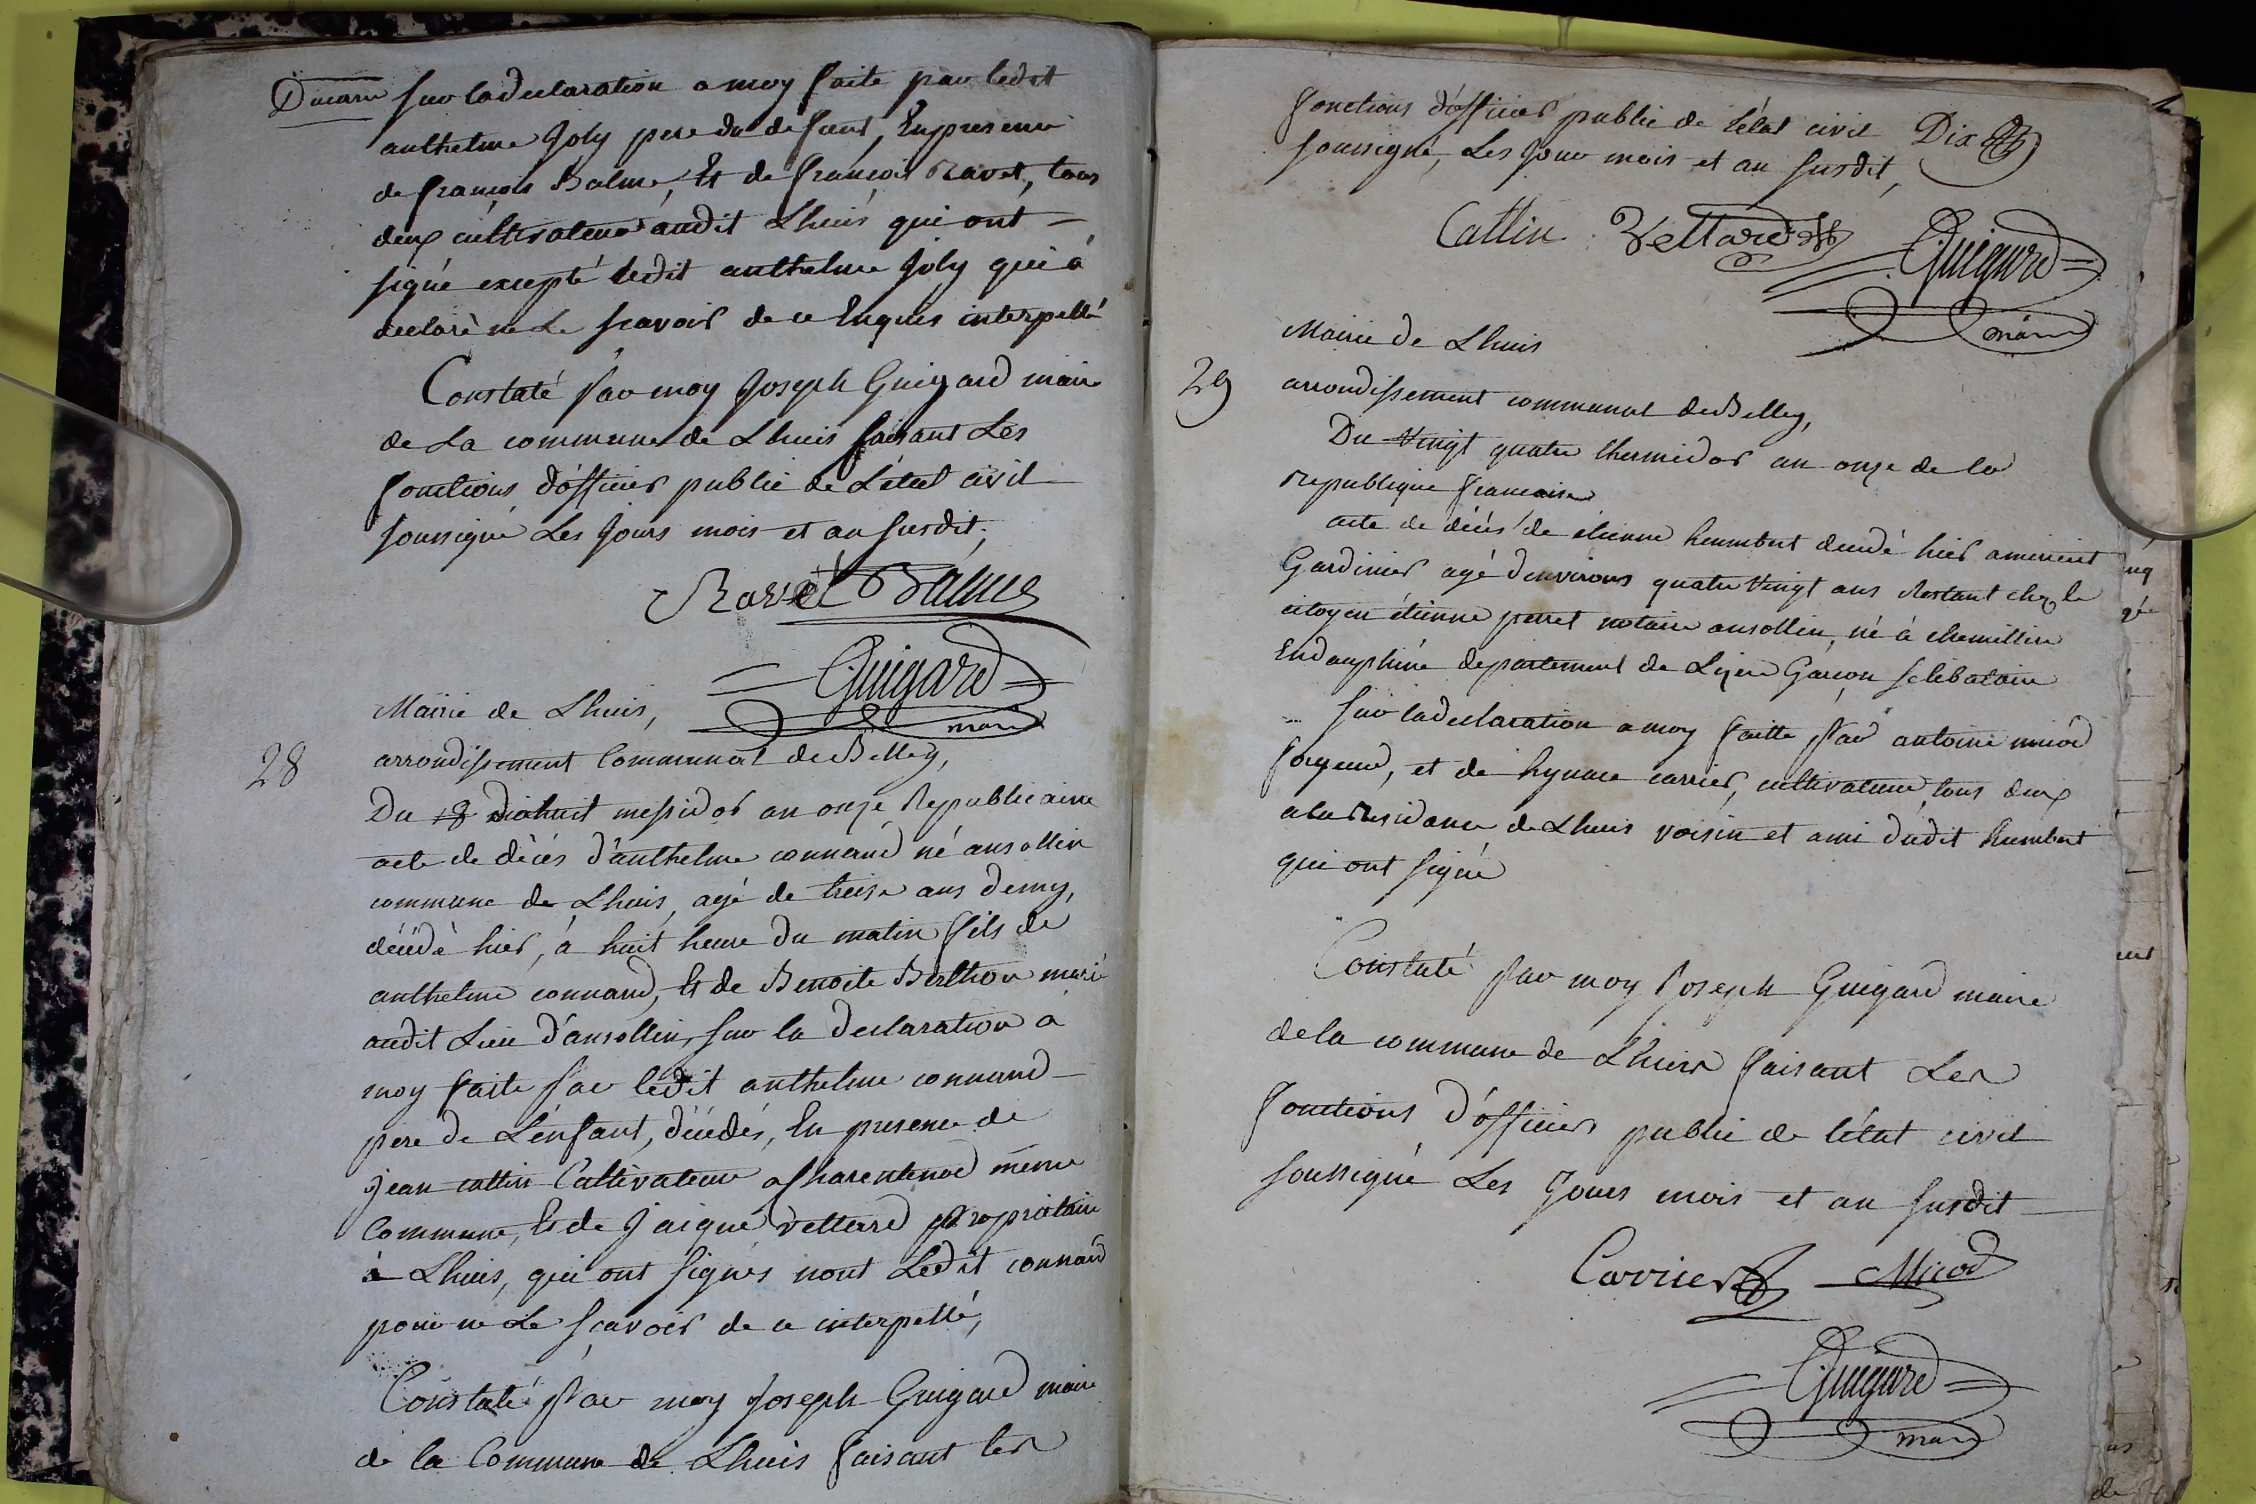 Ducarre
sur la declaration a moy faite par ledit
anthelme Joly pere du defunt, En presence
de françois Balme, Et de françois Ravet, tous
deux cultivateurs audit Lhuis qui ont
signé excepté ledit anthelme Joly qui a
declaré ne Le scavoir de ce Enquis interpellé
Constaté par moy Joseph Guigard maire
de La commune de Lhuis faisant Les
fonctions d'officier public de L'état civil
soussigné Les jours mois et an susdit,
Ravet Balme
Guigard
maire
Mairie de Lhuis,
28
arrondissement Communal de Belley,
Du 18 dixhuit messidor an onze Republicaine
acte de décés d'anthelme connand né ansollin
commune de Lhuis, agé de treise ans demy,
décédé hier, à huit heure du matin fils de
anthelme connand, Et de Benoite Berthon marié
audit Lieu d'ansollin, sur la declaration a
moy faite par ledit anthelme connand
pere de L'enfant, décédés, En presence de
jean cattin Cultivateur a Charentenod même
Commune, Et de Jaique vettard propriétaire
à Lhuis, qui ont signés nont Ledit connand
pour ne Le scavoir de ce interpellé,
Constaté par moy Joseph Guigard maire
de la Commune de Lhuis faisant les
fonctions d'officier public de l'état civil
Dix
soussigné, Les jour mois et an susdit,
Cattin Vettard
Guigard
maire
Mairie de Lhuis
29
arrondissement communal de Belley,
Du vingt quatre thermidor an onze de la
Republique francaise
acte de décés de étienne humbert décédé hier
Gardinier agé denvirons quatre vingt ans Restant chez le
citoyen étienne perret notaire ansollin, né à chemillin
En dauphiné departement de Lizere Garcon selibataire
sur la declaration a moy faitte par antoine micod
et de hynnne carrier, cultivateur, tous deux
a la Residance de Lhuis voisin et ami dudit humbert
qui ont signé
Constaté par moy Joseph Guigard maire
de la commune de Lhuis faisant Les
fonctions d'officier public de l'état civil
soussigné Les Jours mois et an susdit
Carrier Micod
Guigard
maire